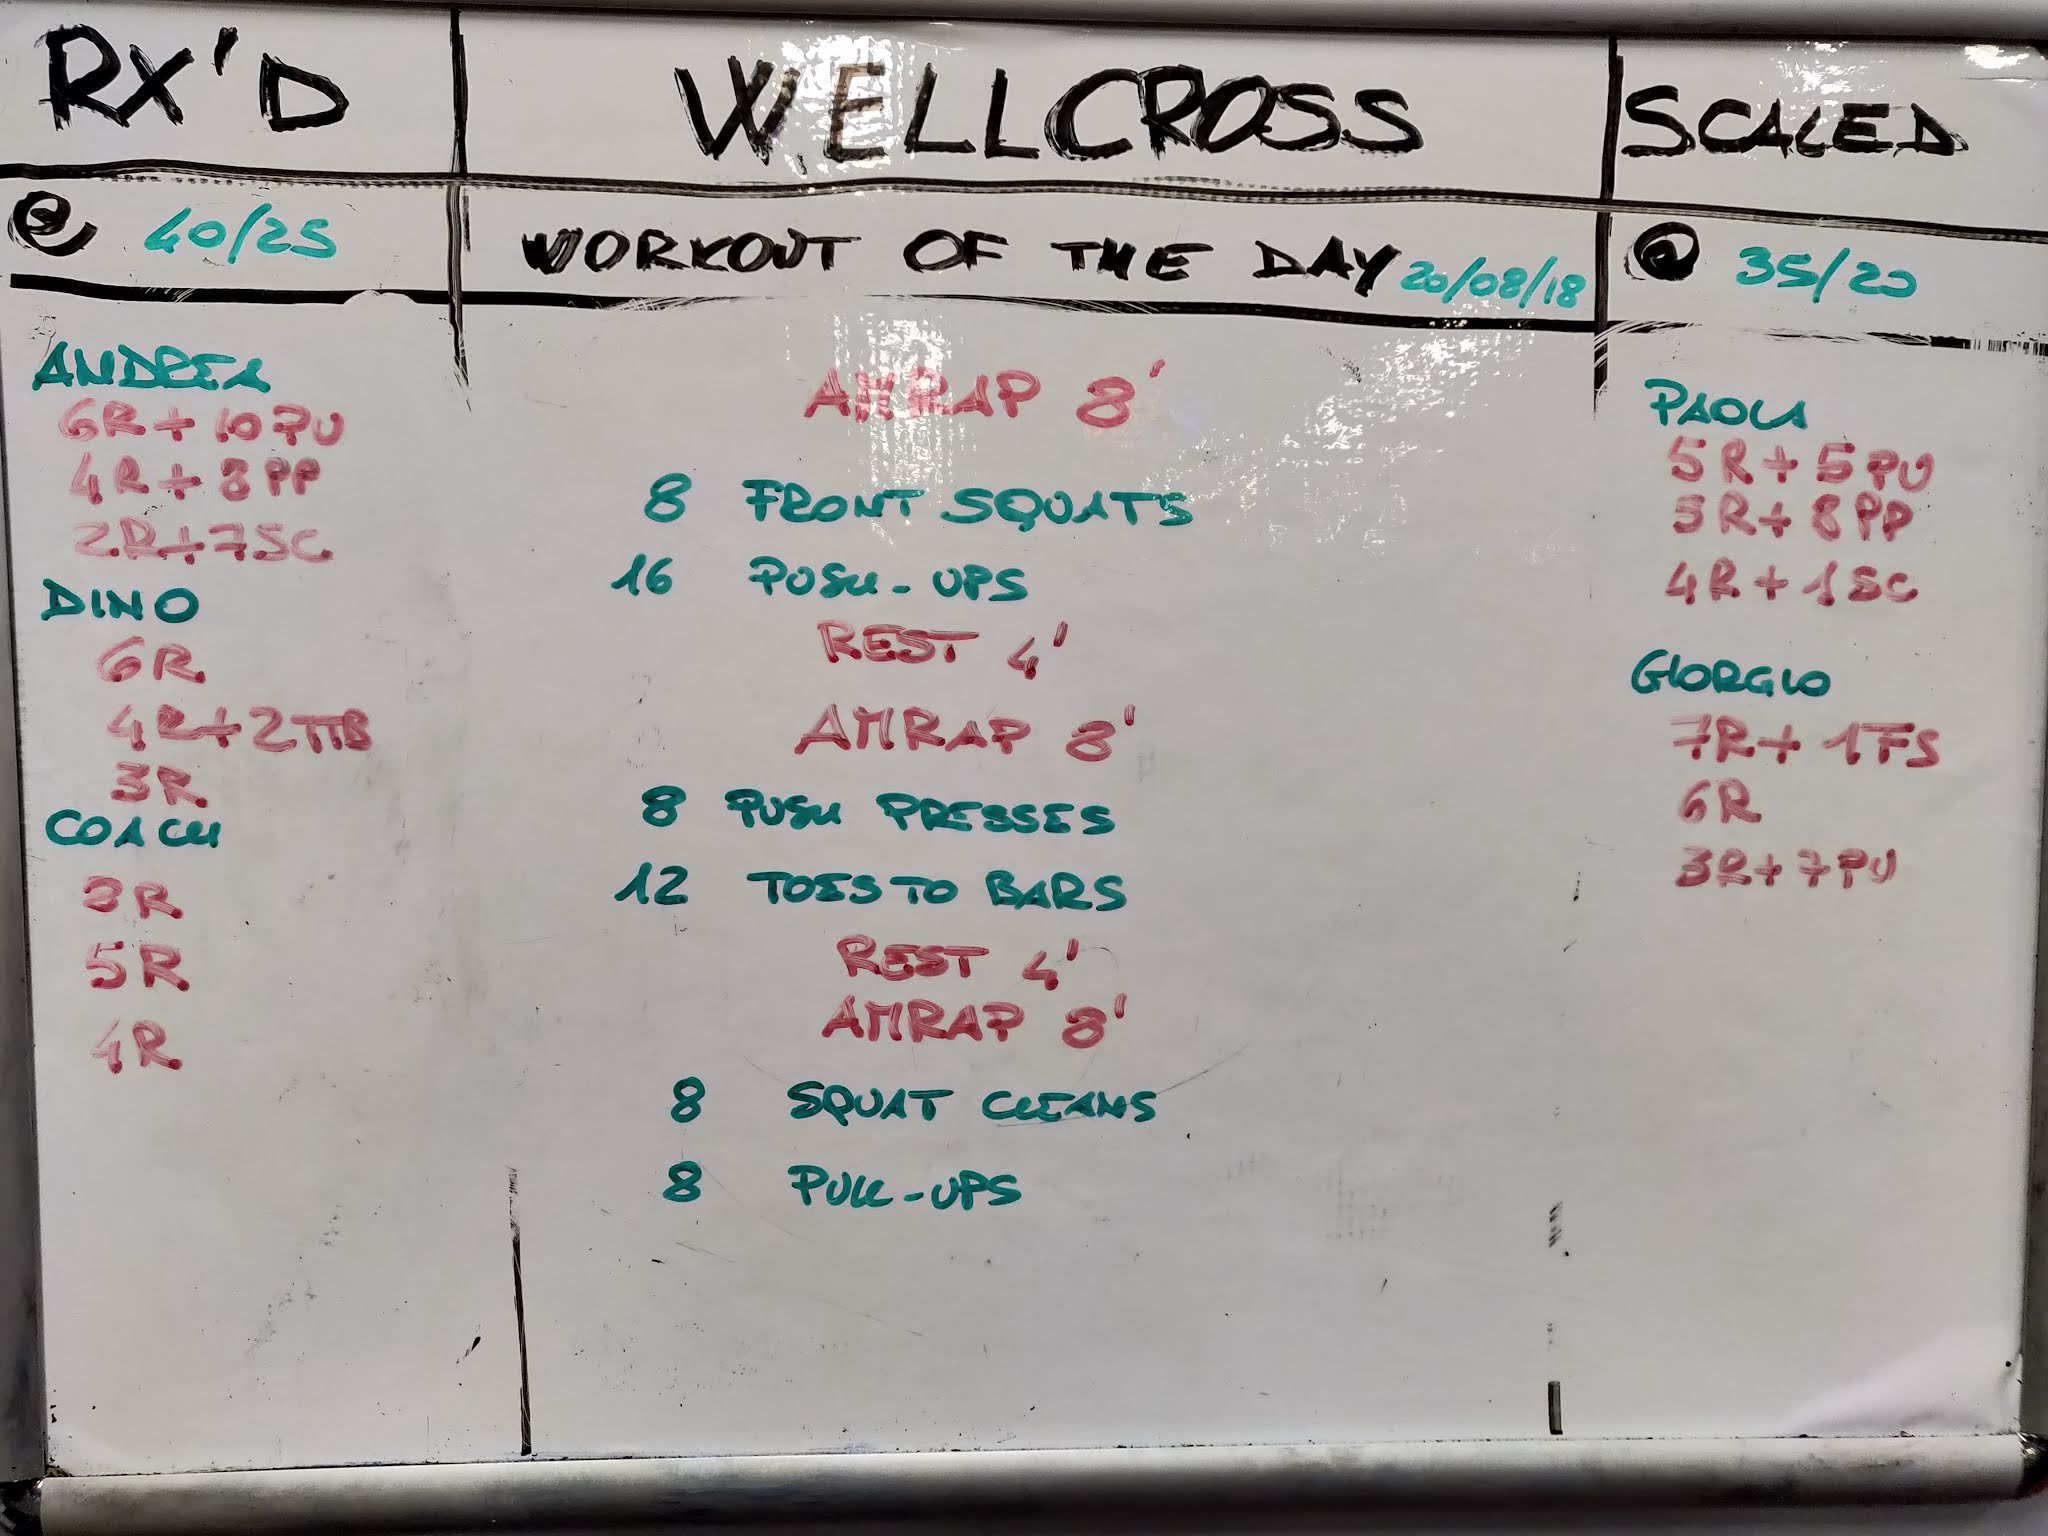 RX'D
WELLCROSS
SCALED
@ 40/25
WORKOUT OF THE DAY 20/08/18
@ 35/20
ANDREA
6R + 10 PU
4R + 8 PP
2R + 7 SC
DINO
6R
4R + 2 TTB
3R
COACH
R
5R
4R
AMRAP 8'
8 FRONT SQUATS
16 PUSH-UPS
REST 4'
AMRAP 8'
8 PUSH PRESSES
12 TOES TO BARS
REST 4'
AMRAP 8'
8 SQUAT CLEANS
8 PULL-UPS
PAOLA
5R + 5 PU
5R + 8 PP
4R + 1 SC
GIORGIO
7R + 1 FS
6R
3R + 7 PU